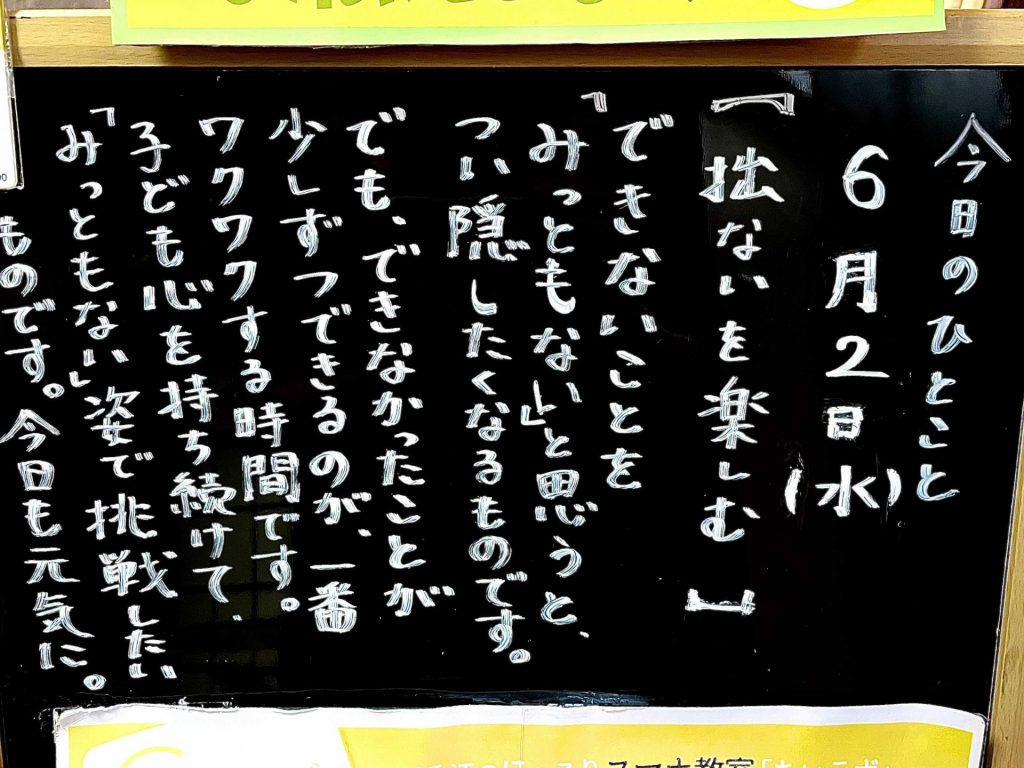 今日のひとこと
6月2日(水)
【拙ないを楽しむ】
「できないことを
みっともない」と思うと、
つい隠したくなるものです。
でも、できなかったことが
少しずつできるのが、一番
ワクワクする時間です。
子ども心を持ち続けて、
「みっともない」姿で挑戦したい
ものです。今日も元気に。
スマホ教室